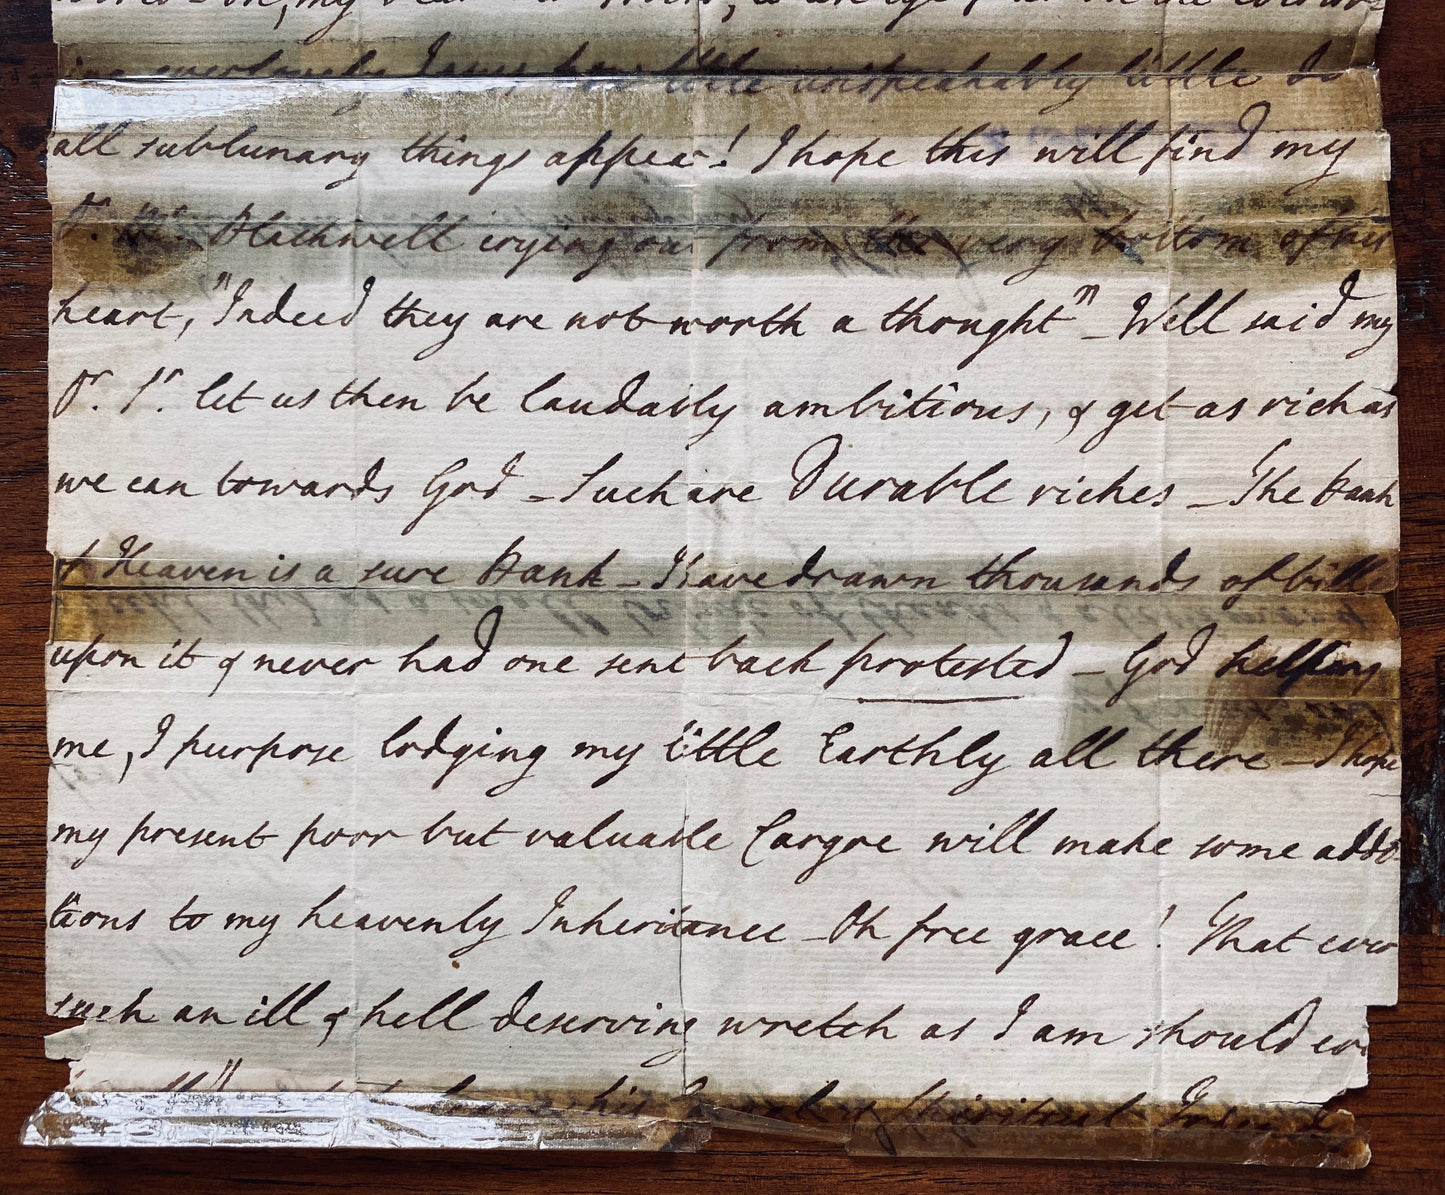 little unspeakably little do
all sublunary things appear! I hope this will find my
Dr. Mr. Blackwell crying out from the very bottom of his
heart, "Indeed they are not worth a thought" - Well said my
Dr. Sr. let us then be laudably ambitious, & get as rich as
we can towards God - Such are Durable riches - The Bank
of Heaven is a sure Bank - I have drawn thousands of bills
upon it & never had one sent back protested - God helping
me, I purpose lodging my little Earthly all there - I hope
my present poor but valuable Cargoe will make some addi-
tions to my heavenly Inheritance - Oh free grace! That ever
such an ill & hell deserving wretch as I am should
his Spiritual